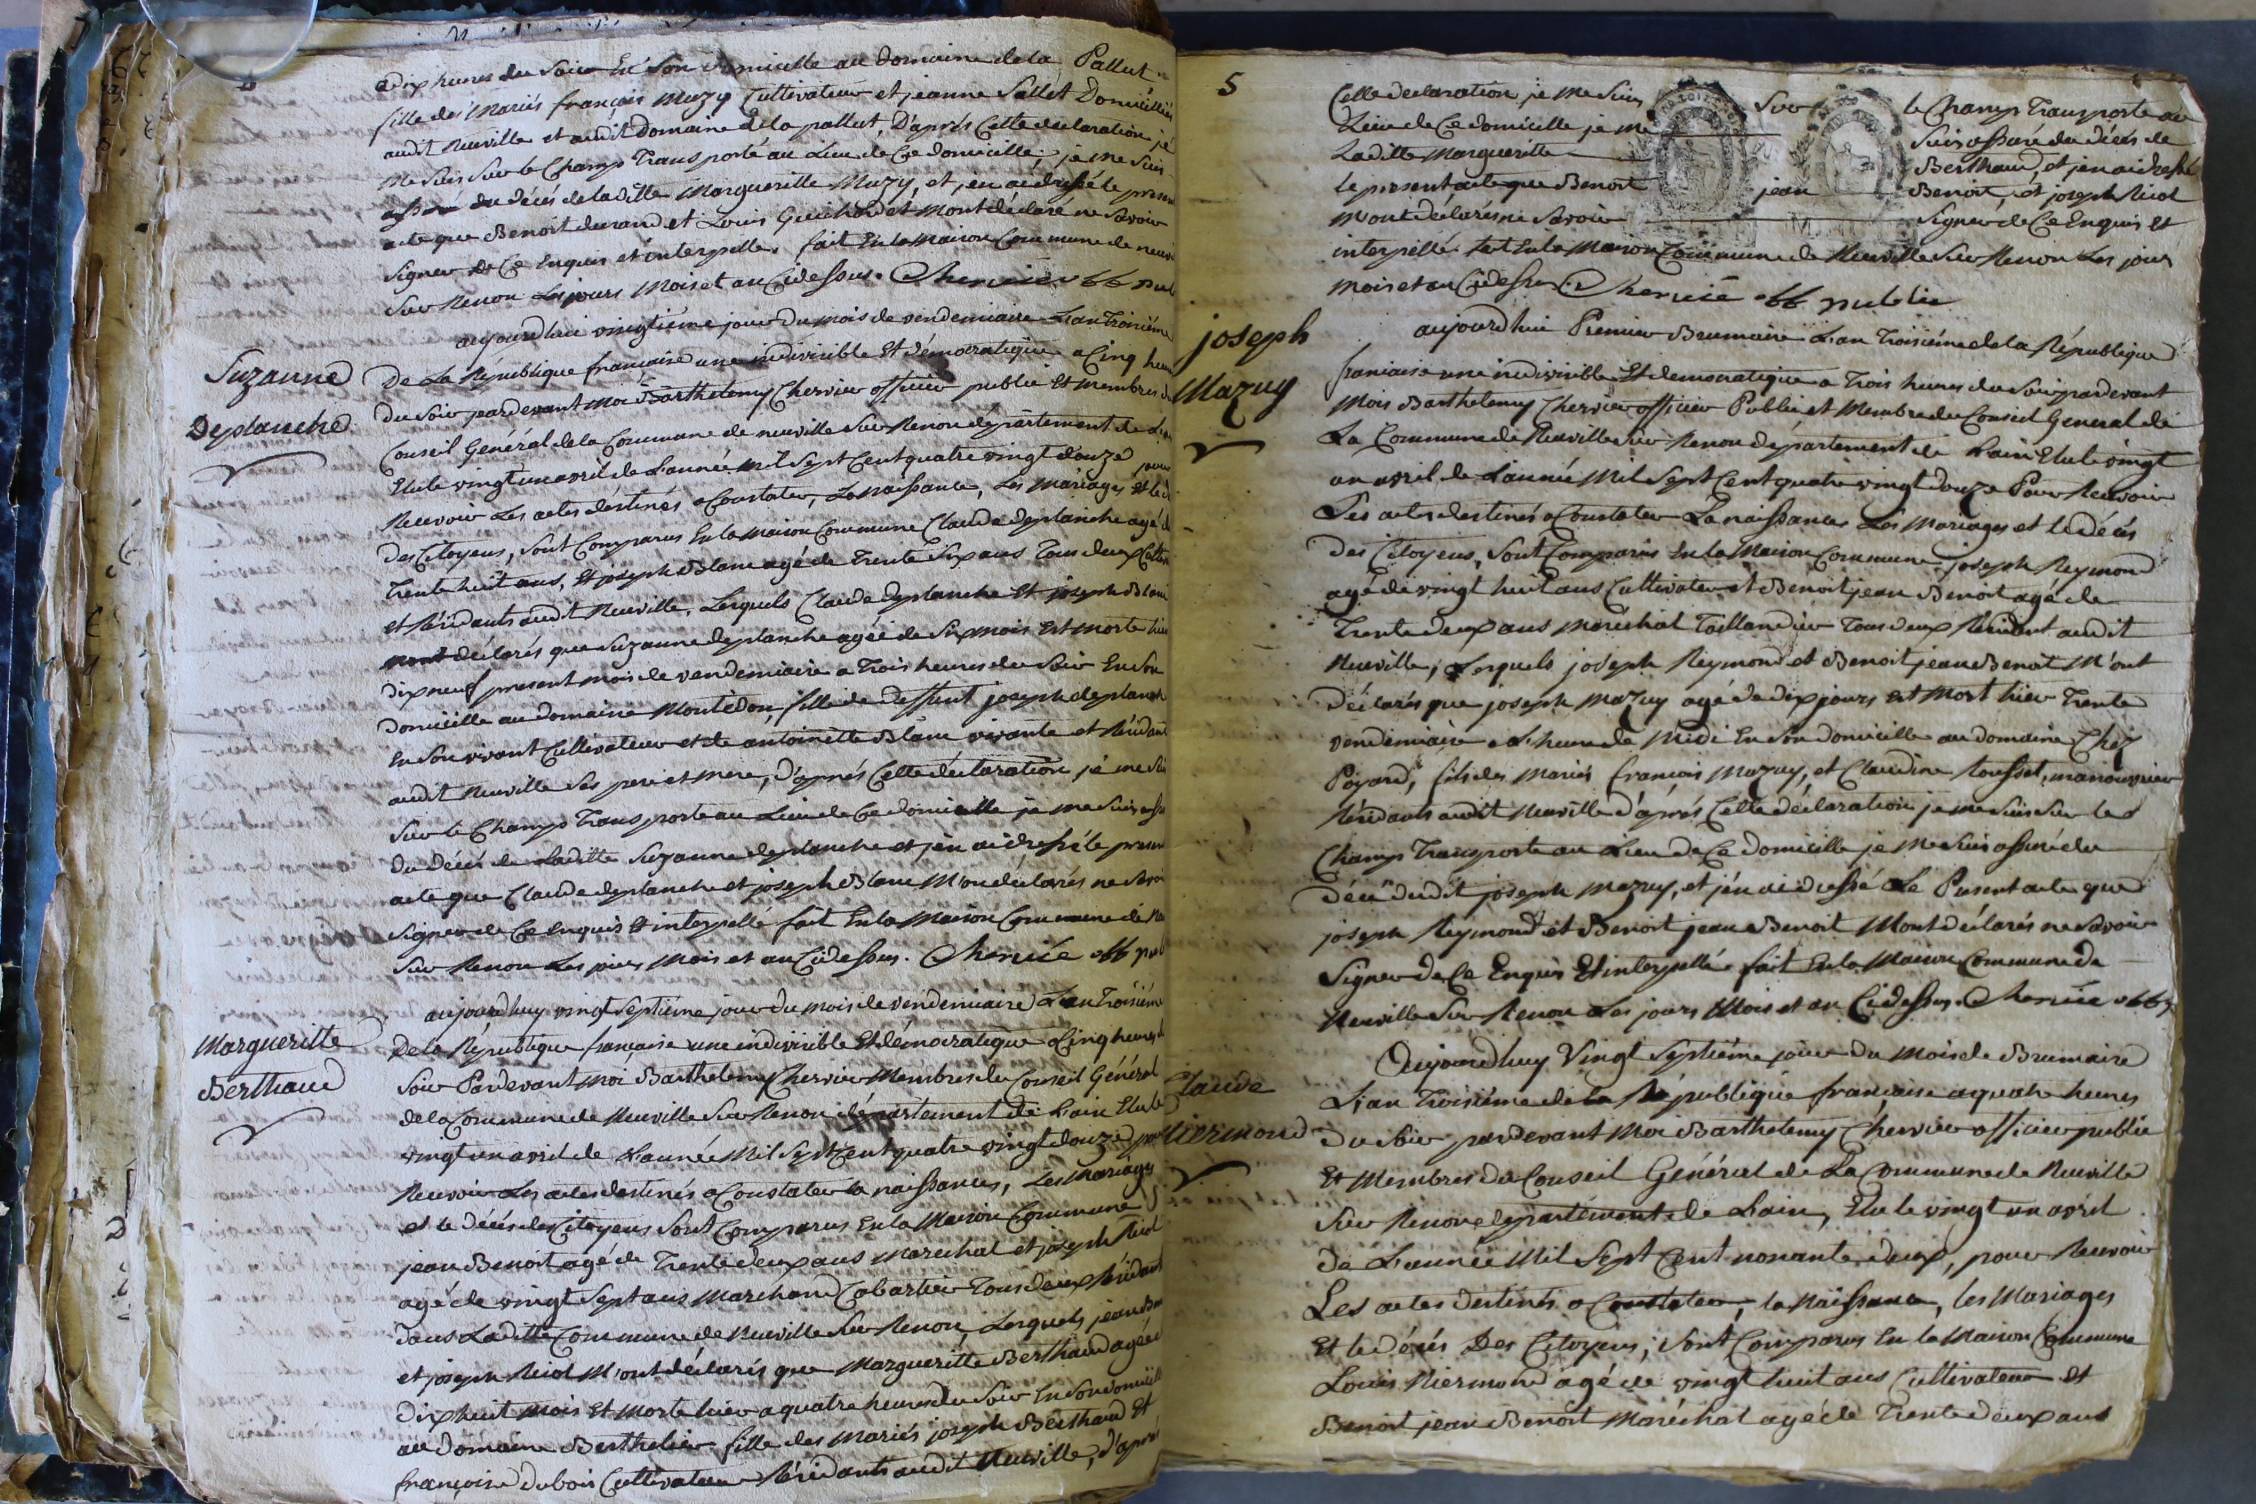 a Dix heures du Soir En Son domicille au domaine de la Pallut
fille des Mariés françois Muzy Cultivateur et jeanne Sallet Domicilliés
audit Neuville et audit Domaine de la pallut, D'après Cette declaration je
me Suis Sur le Champ Transporté au Lieu de Ce domicille, je me Suis
assuré du décés de laditte Margueritte Muzy, et j'en ai dressé le present
acte que Benoit durand et Louis Guichard et M'ont déclaré ne Savoir
Signer de Ce Enquis et interpellé. fait En la Maison Commune de neuv
Sur Renon Les jours Mois et an Cidessus. Chervié off pub
aujourdhui vingtiéme jour Du mois de vendemiaire L'an Troisiéme
De La République francaise une indivisible Et démocratique a Cinq heu
Suzanne
Deplanche
Du Soir pardevant Moi Barthelemy Chervier officier public Et membres du
Conseil Genéral de la Commune de neuville Sur Renon département de L'ain
Elu le vingt un avril de L'année Mil Sept Cent quatre vingt douze pour
Recevoir Les actes déstinés a Constater, La naissance, Les Mariages et le d
Des Citoyens, Sont Comparus En la Maison Commune Claude deplanche agé de
Trente huit ans, Et joseph Blanc agé de Trente Six ans Tous deux Cultiv
et Résidants audit Neuville, Lesquels Claude deplanche Et joseph Blanc
mont déclarés que Suzanne deplanche agée de Six mois Est Morte hier
dix neuf present mois de vendemiaire a Trois heures du Soir En Son
domicille au domaine Montédon, fille de deffunt joseph deplanche
En Son vivant Cultivateur et de antoinètte Blanc vivante et Résidant
audit Neuville Ses pere et mere, d'aprés Cette déclaration je me Suis
Sur le Champ Transporte au Lieu de Ce domicille je me Suis assu
Du décés de Laditte Suzanne deplanche et j'en ai dressé le present
acte que Claude deplanche et joseph Blanc M'on déclarés ne Savoi
Signer de Ce Enquis Et interpelle fait En la Maison Commune de Ne
Sur Renon Les jours Mois et an Cidessus. Chervié off pub
aujourdhuy vingt Septiéme jour du mois de vendemiaire L'an Troisiéme
Margueritte
Berthaud
De la République francaise une indivisible Et démocratique a Cinq heures du
Soir Pardevant Moi Barthelemy Chervier Membres du Conseil Général
de la Commune de Neuville Sur Renon département de L'ain Elu le
vingt un avril de L'année Mil Sept Cent quatre vingt douze pour
Recevoir Les actes destinés a Constater la naissances, Les Mariages
et le décés des Citoyens Sont Comparus En la Maison Commune
jean Benoit agé de Trente deux ans Marechal et joseph Nicol
agé de vingt Sept ans Marchand Cabartier Tous deux Résidant
dans Laditte Commune de Neuville Sur Renon, Lesquels jean Ben
et joseph Nicol M'ont déclarés que Margueritte Berthaud agée de
dix huit Mois Et Morte hier a quatre heures du Soir En Son domicille
au domaine Berthelier fille des Mariés joseph Berthaud Et
françoise dubois Cultivateur Résidants audit Neuville, d'après
5
Cette declaration je me Suis Sur le Champ Transporté au
Lieu de Ce domicille je me Suis assuré du décés de
Laditte Margueritte Berthaud, et j'en ai dressé
le present acte que Benoit jean Benoit, et joseph Nicol
M'ont déclarés ne Savoir Signer de Ce Enquis Et
interpellé. fait En la Maison Commune de Neuville Sur Renon Les jours
Mois et an Cidessus. Chervié off public
joseph
Mazuy
aujourdhui Premier Brumaire L'an Troisiéme de la République
francaise une indivisible Et democratique a Trois heures du Soir pardevant
Mois Barthelemy Chervier officier Public et Membre du Conseil General de
La Commune de Neuville Sur Renon département de L'ain Elu le vingt
un avril de L'année Mil Sept Cent quatre vingt douze Pour Recevoir
Les actes destinés a Constater La naissances Les Mariages et le décés
Des Citoyens, Sont Comparus En la Maison Commune joseph Reymond
agé de vingt huit ans Cultivateur et Benoit jean Benoit agé de
Trente deux ans Maréchal Taillandier Tous deux Résidant audit
Neuville, Lesquels joseph Reymond et Benoit jean Benoit M'ont
Déclarés que joseph Mazuy agé de dix jours Est Mort hier Trente
vendemiaire a L'heure de Midi En Son domicille au domaine Chez
Poyard, fils des Mariés francois Mazuy, et Claudine Tousset, manouvrier
Résidants audit Neuville d'aprés Cette déclaration je me Suis Sur le
Champ Transporte au Lieu de Ce domicille je me Suis assuré du
décé dudit joseph Mazuy, et j'en ai dressé Le Present acte que
joseph Reymond et Benoit jean Benoit M'ont déclarés ne Savoir
Signer de Ce Enquis Et interpellé. fait En la Maison Commune de
Neuville Sur Renon Les jours Mois et an Cidessus. Chervié off p
Claude
Niermond
Aujourdhuy Vingt Septiéme jour Du Mois de Brumaire
L'an Troisiéme de la République francaise a quatre heures
du Soir pardevant Moi Barthelemy Chervier officier public
Et Membres du Conseil Genéral de La Commune de Neuville
Sur Renon département de L'ain, Elu le vingt un avril
de L'année Mil Sept Cent nonante deux, pour Recevoir
Les actes destinés a Constater, la Naissance, les Mariages
Et le décés Des Citoyens, Sont Comparus En la Maison Commune
Louis Niermond agé de vingt huit ans Cultivateur et
Benoit jean Benoit Maréchal agé de Trente deux ans